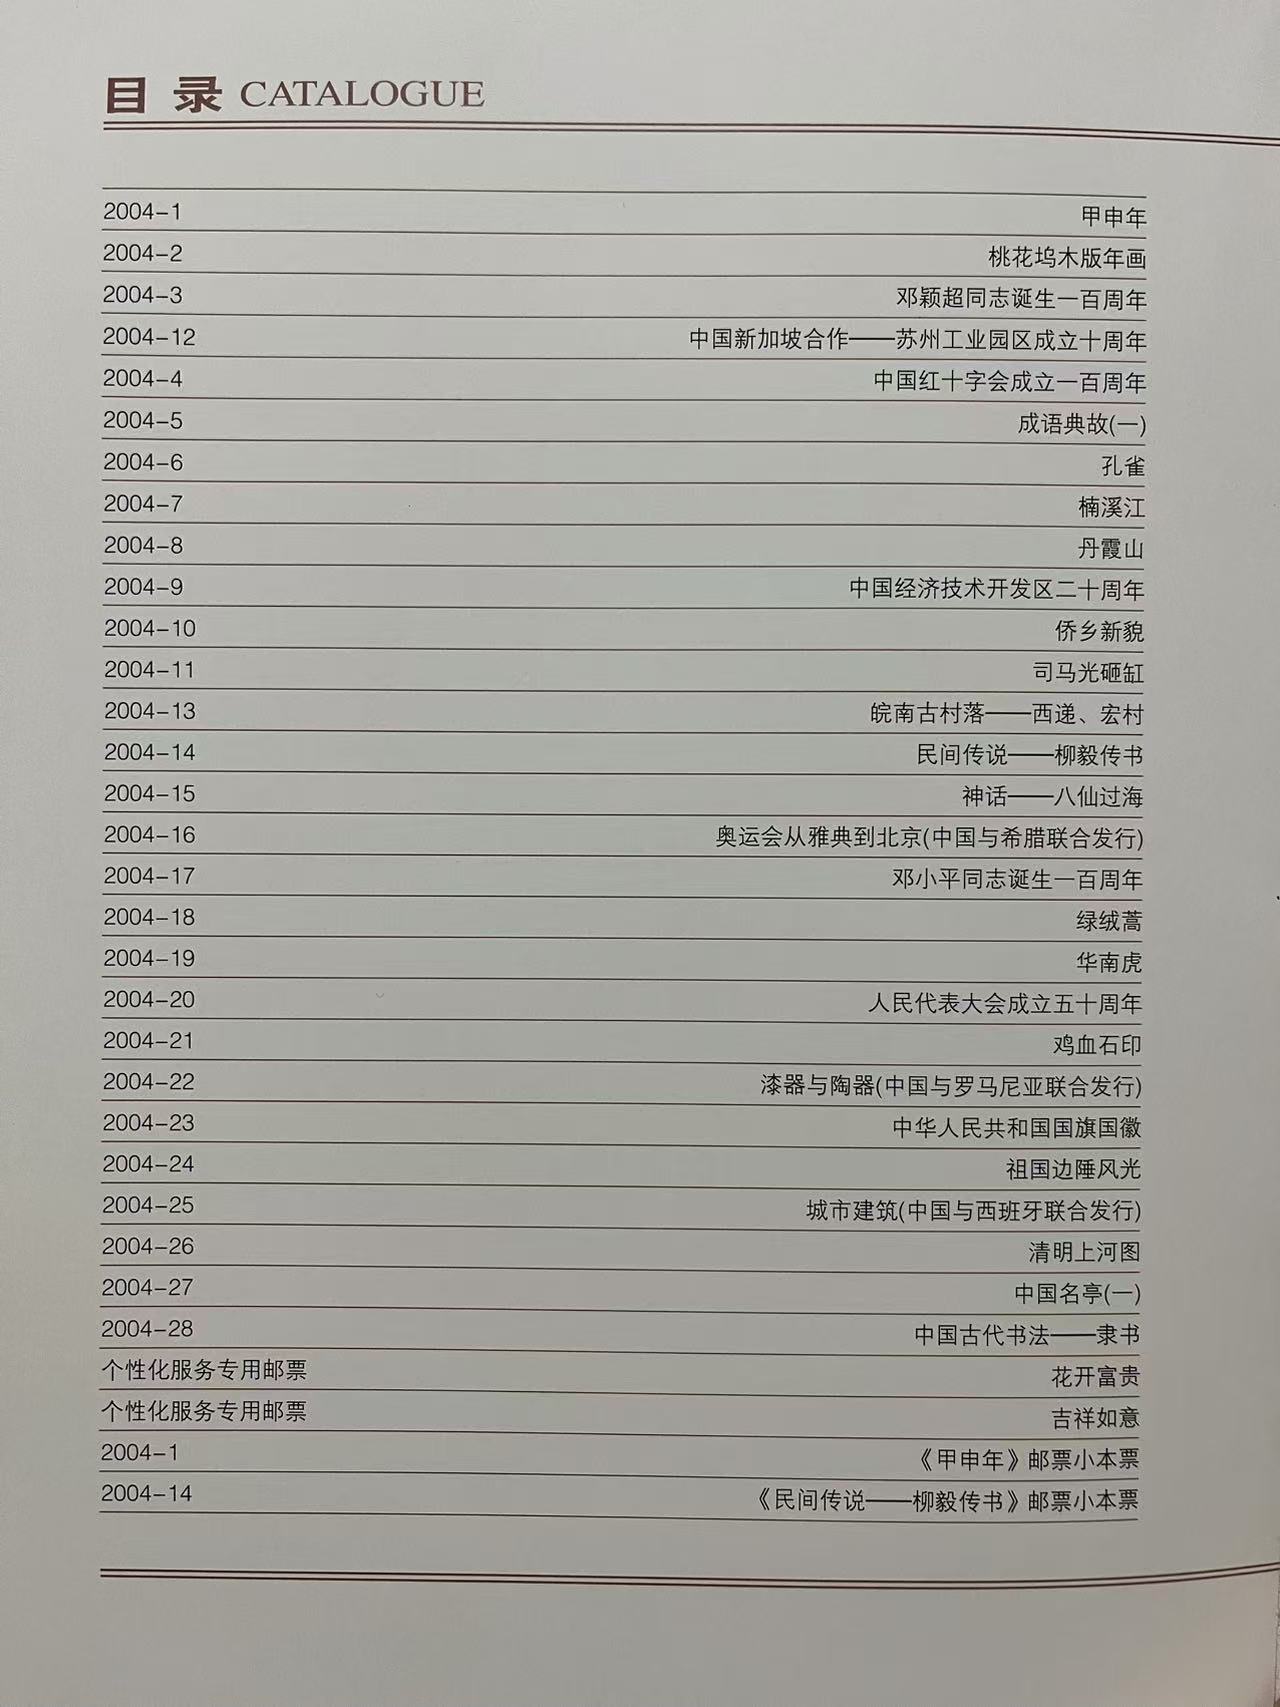 目 录 CATALOGUE
2004-1 甲申年
2004-2 桃花坞木版年画
2004-3 邓颖超同志诞生一百周年
2004-12 中国新加坡合作——苏州工业园区成立十周年
2004-4 中国红十字会成立一百周年
2004-5 成语典故(一)
2004-6 孔雀
2004-7 楠溪江
2004-8 丹霞山
2004-9 中国经济技术开发区二十周年
2004-10 侨乡新貌
2004-11 司马光砸缸
2004-13 皖南古村落——西递、宏村
2004-14 民间传说——柳毅传书
2004-15 神话——八仙过海
2004-16 奥运会从雅典到北京(中国与希腊联合发行)
2004-17 邓小平同志诞生一百周年
2004-18 绿绒蒿
2004-19 华南虎
2004-20 人民代表大会成立五十周年
2004-21 鸡血石印
2004-22 漆器与陶器(中国与罗马尼亚联合发行)
2004-23 中华人民共和国国旗国徽
2004-24 祖国边陲风光
2004-25 城市建筑(中国与西班牙联合发行)
2004-26 清明上河图
2004-27 中国名亭(一)
2004-28 中国古代书法——隶书
个性化服务专用邮票 花开富贵
个性化服务专用邮票 吉祥如意
2004-1 《甲申年》邮票小本票
2004-14 《民间传说——柳毅传书》邮票小本票